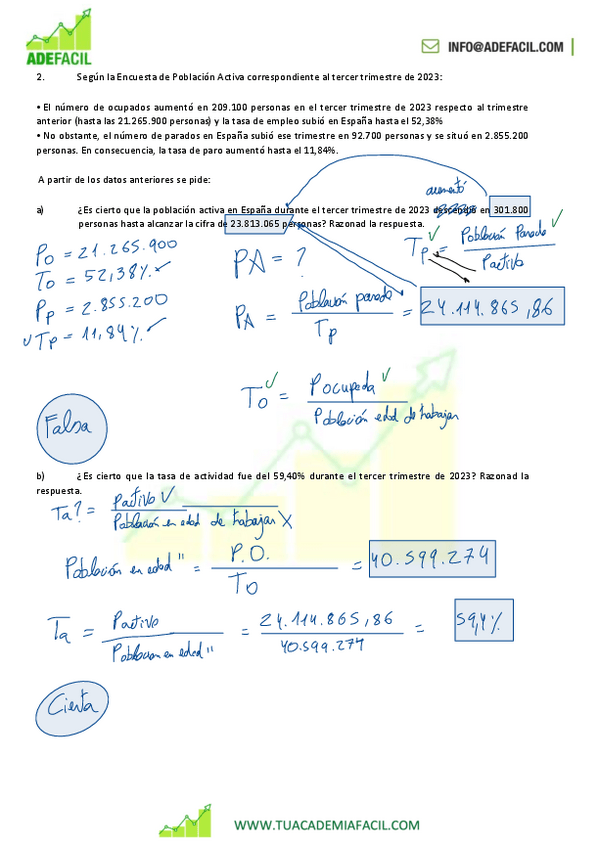 ADEFACIL
INFO@ADEFACIL.COM
2. Según la Encuesta de Población Activa correspondiente al tercer trimestre de 2023:
• El número de ocupados aumentó en 209.100 personas en el tercer trimestre de 2023 respecto al trimestre
anterior (hasta las 21.265.900 personas) y la tasa de empleo subió en España hasta el 52,38%
• No obstante, el número de parados en España subió ese trimestre en 92.700 personas y se situó en 2.855.200
personas. En consecuencia, la tasa de paro aumentó hasta el 11,84%.
A partir de los datos anteriores se pide:
aumentó
a) ¿Es cierto que la población activa en España durante el tercer trimestre de 2023 descendió en 301.800
personas hasta alcanzar la cifra de 23.813.065 personas? Razonad la respuesta.
Po = 21.265.900
To = 52,38%
Pp = 2.855.200
Tp = 11,84%
PA = ?
Tp = Población Parada / Pactiva
PA = Población parada / Tp = 24.114.865,86
To = Pocupada / Población edad de trabajar
Falsa
b) ¿Es cierto que la tasa de actividad fue del 59,40% durante el tercer trimestre de 2023? Razonad la
respuesta.
Ta? = Pactiva / Población en edad de trabajar X
Población en edad " = P.O. / TO = 40.599.274
Ta = Pactiva / Poblacion en edad " = 24.114.865,86 / 40.599.274 = 59,4%
Cierta
WWW.TUACADEMIAFACIL.COM